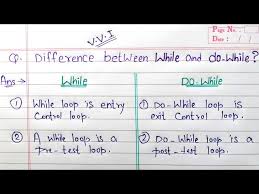 V.V.I
Page No.
Date
Q. Difference between While and do-While?
Ans → While
Do-While
① While loop is entry
Control loop.
① Do-While loop is
exit Control loop.
② A While loop is a
pre-test loop.
② Do-While loop is a
post-test loop.